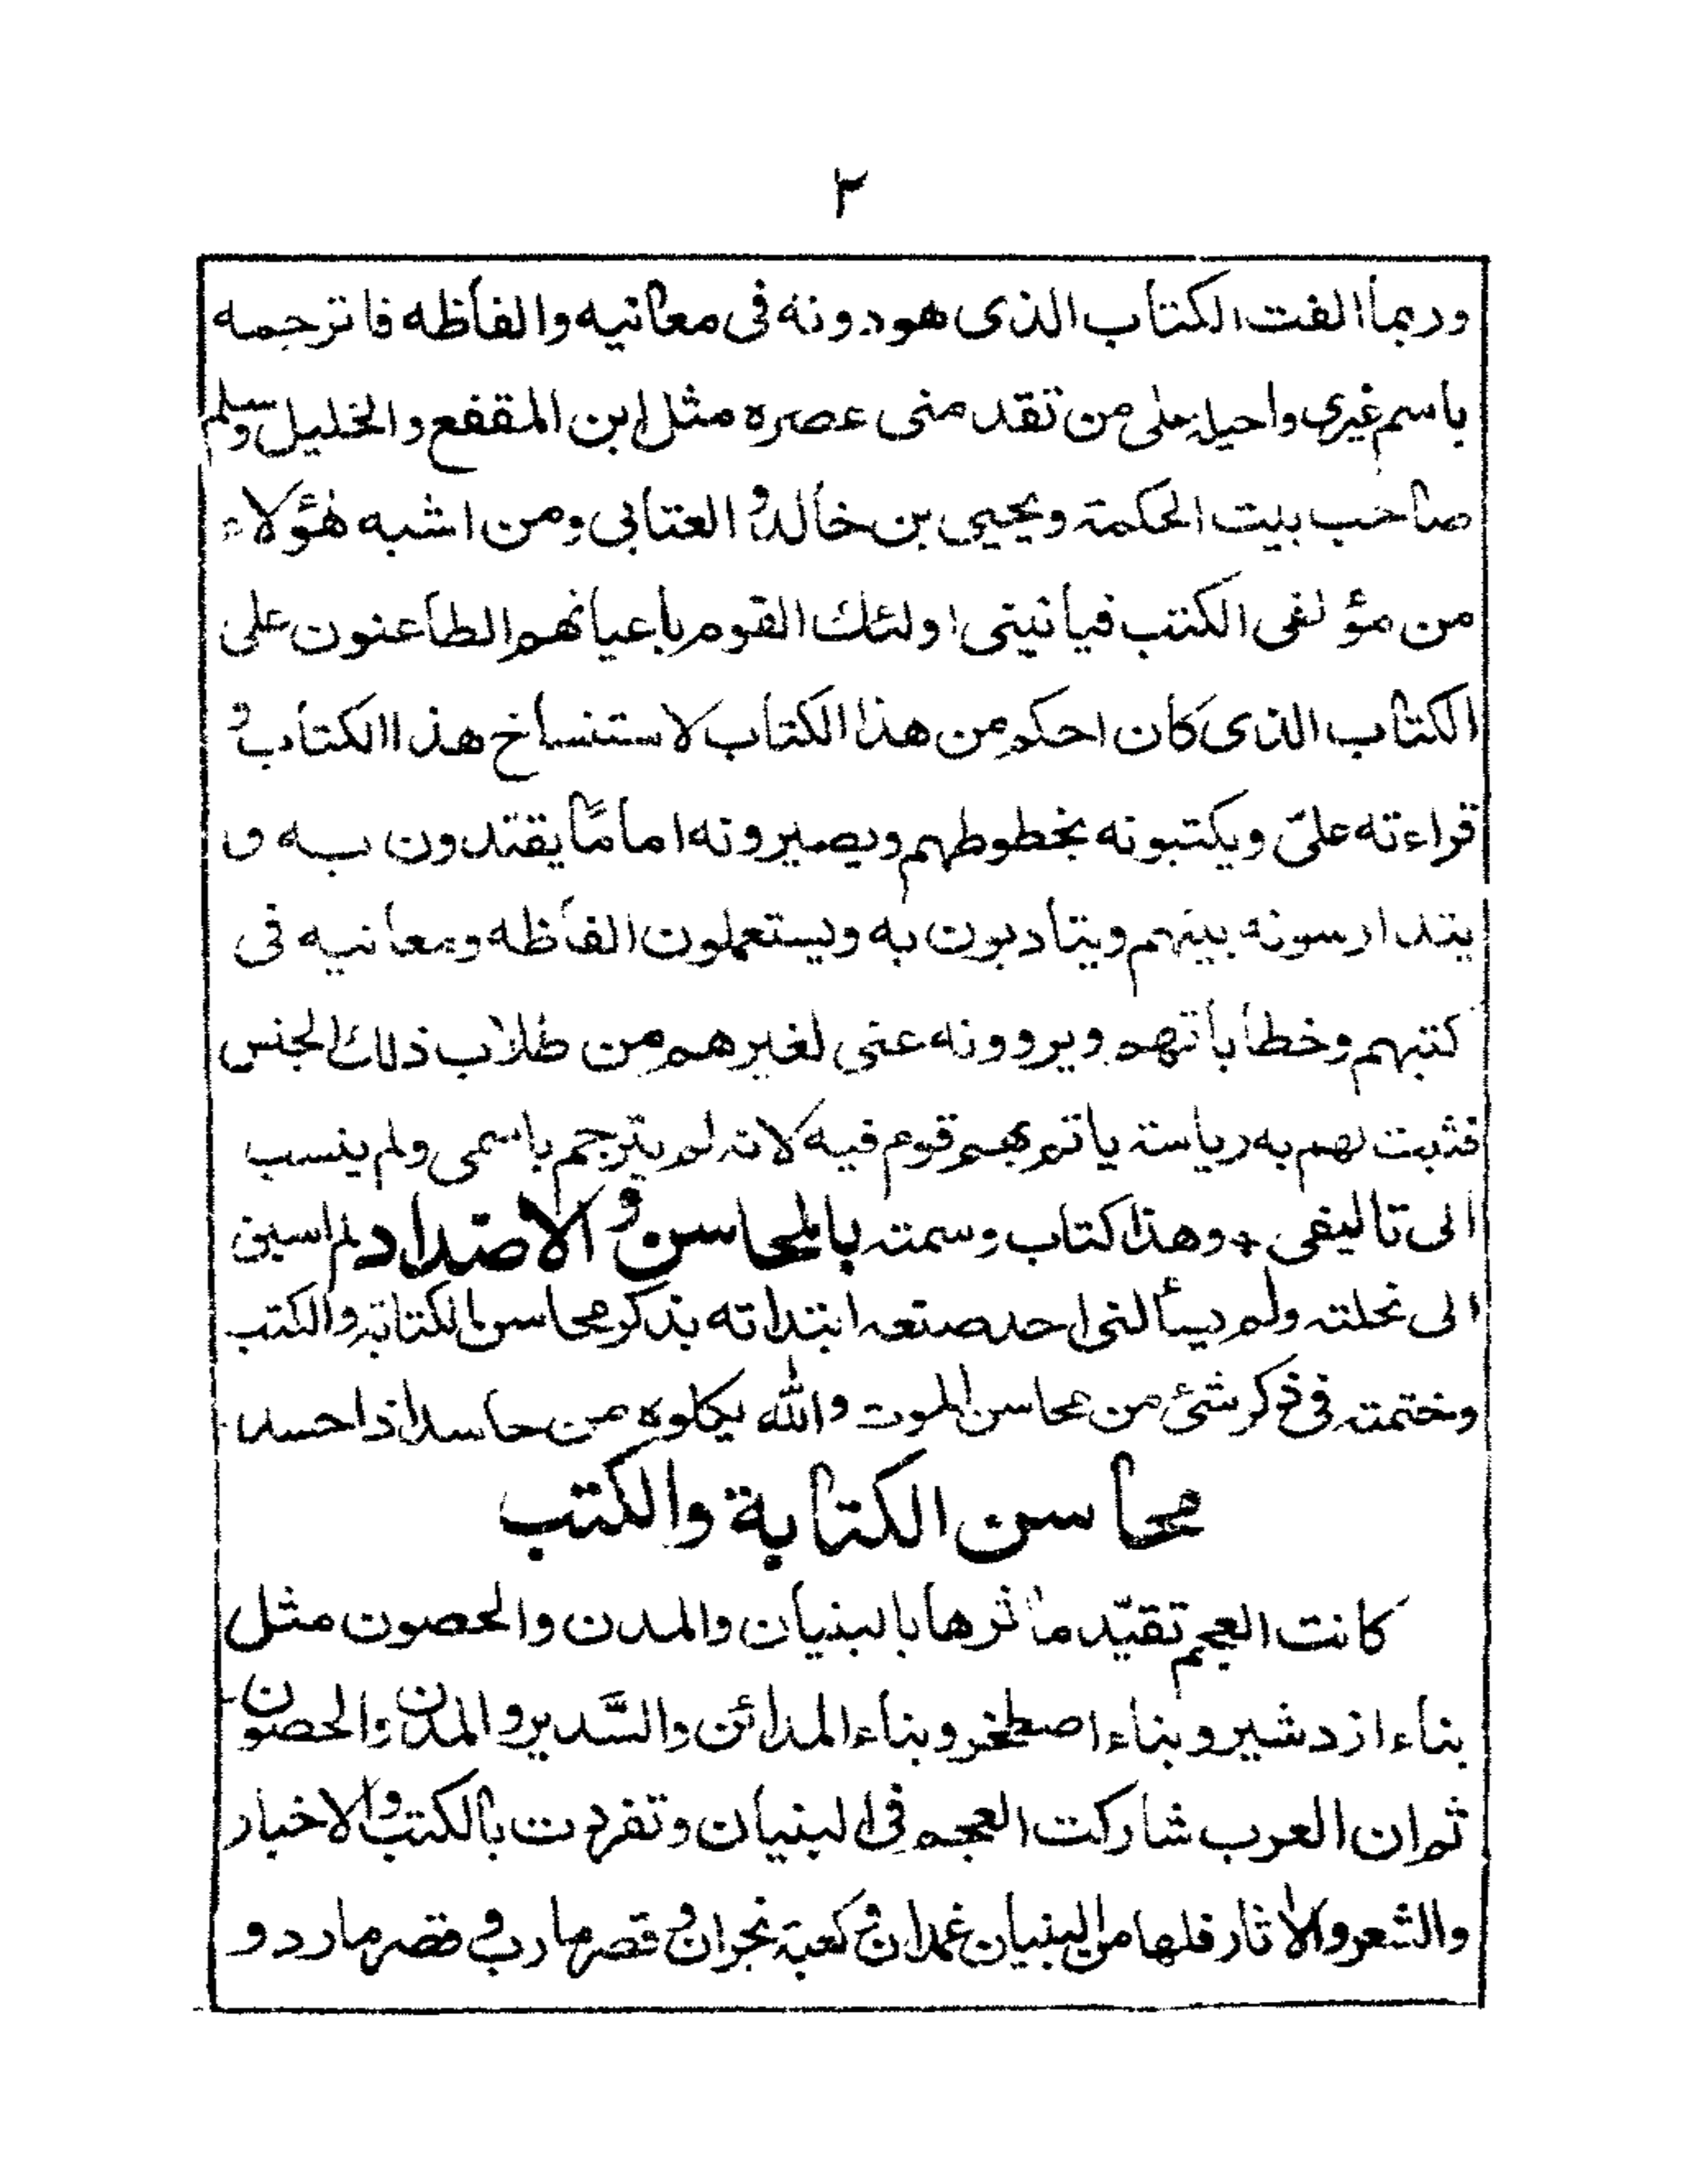 ٢
وربما الفت الكتاب الذى هو دونه فى معانيه والفاظه فاترجمه
باسم غيرى واحيله على من تقد منى عصره مثل ابن المقفع والخليل وسلم
صاحب بيت الحكمة ويحيى بن خالد و العتابى ومن اشبه هٰؤلاء
من مؤلفى الكتب فيأتينى اولئك القوم باعيانهم الطاعنون على
الكتاب الذى كان احكم من هذا الكتاب لاستنساخ هذا الكتاب و
قراءته علىّ ويكتبونه بخطوطهم ويصيرونه اماما يقتدون به و
يتدارسونه بينهم ويتادبون به ويستعملون الفاظه ومعانيه فى
كتبهم وخطاباتهم ويروونه عنى لغيرهم من طلاب ذلك الجنس
فثبت لهم به رياسة ياتم بهم قوم فيه لانه لم يترجم باسمى ولم ينسب
الى تاليفى * وهذا كتاب وسمته بالمحاسن و الاضداد لم اسبق
الى نحلته ولم يسألنى احد صنعه ابتداته بذكر محاسن الكتابة والكتب
وختمته فى ذكر شئ من محاسن الموت والله يكلوه من حاسد اذا حسد
محاسن الكتابة والكتب
كانت العجم تقيّد ماٰثرها بالبنيان والمدن والحصون مثل
بناء ازدشير وبناء اصطخر وبناء المدائن والسَّدير والمدن والحصون
ثم ان العرب شاركت العجم فى البنيان وتفردت بالكتب والاخبار
والشعر والاٰثار فلها من البنيان غمدان و كعبة نجران و قصر مارب و قصر مارد و